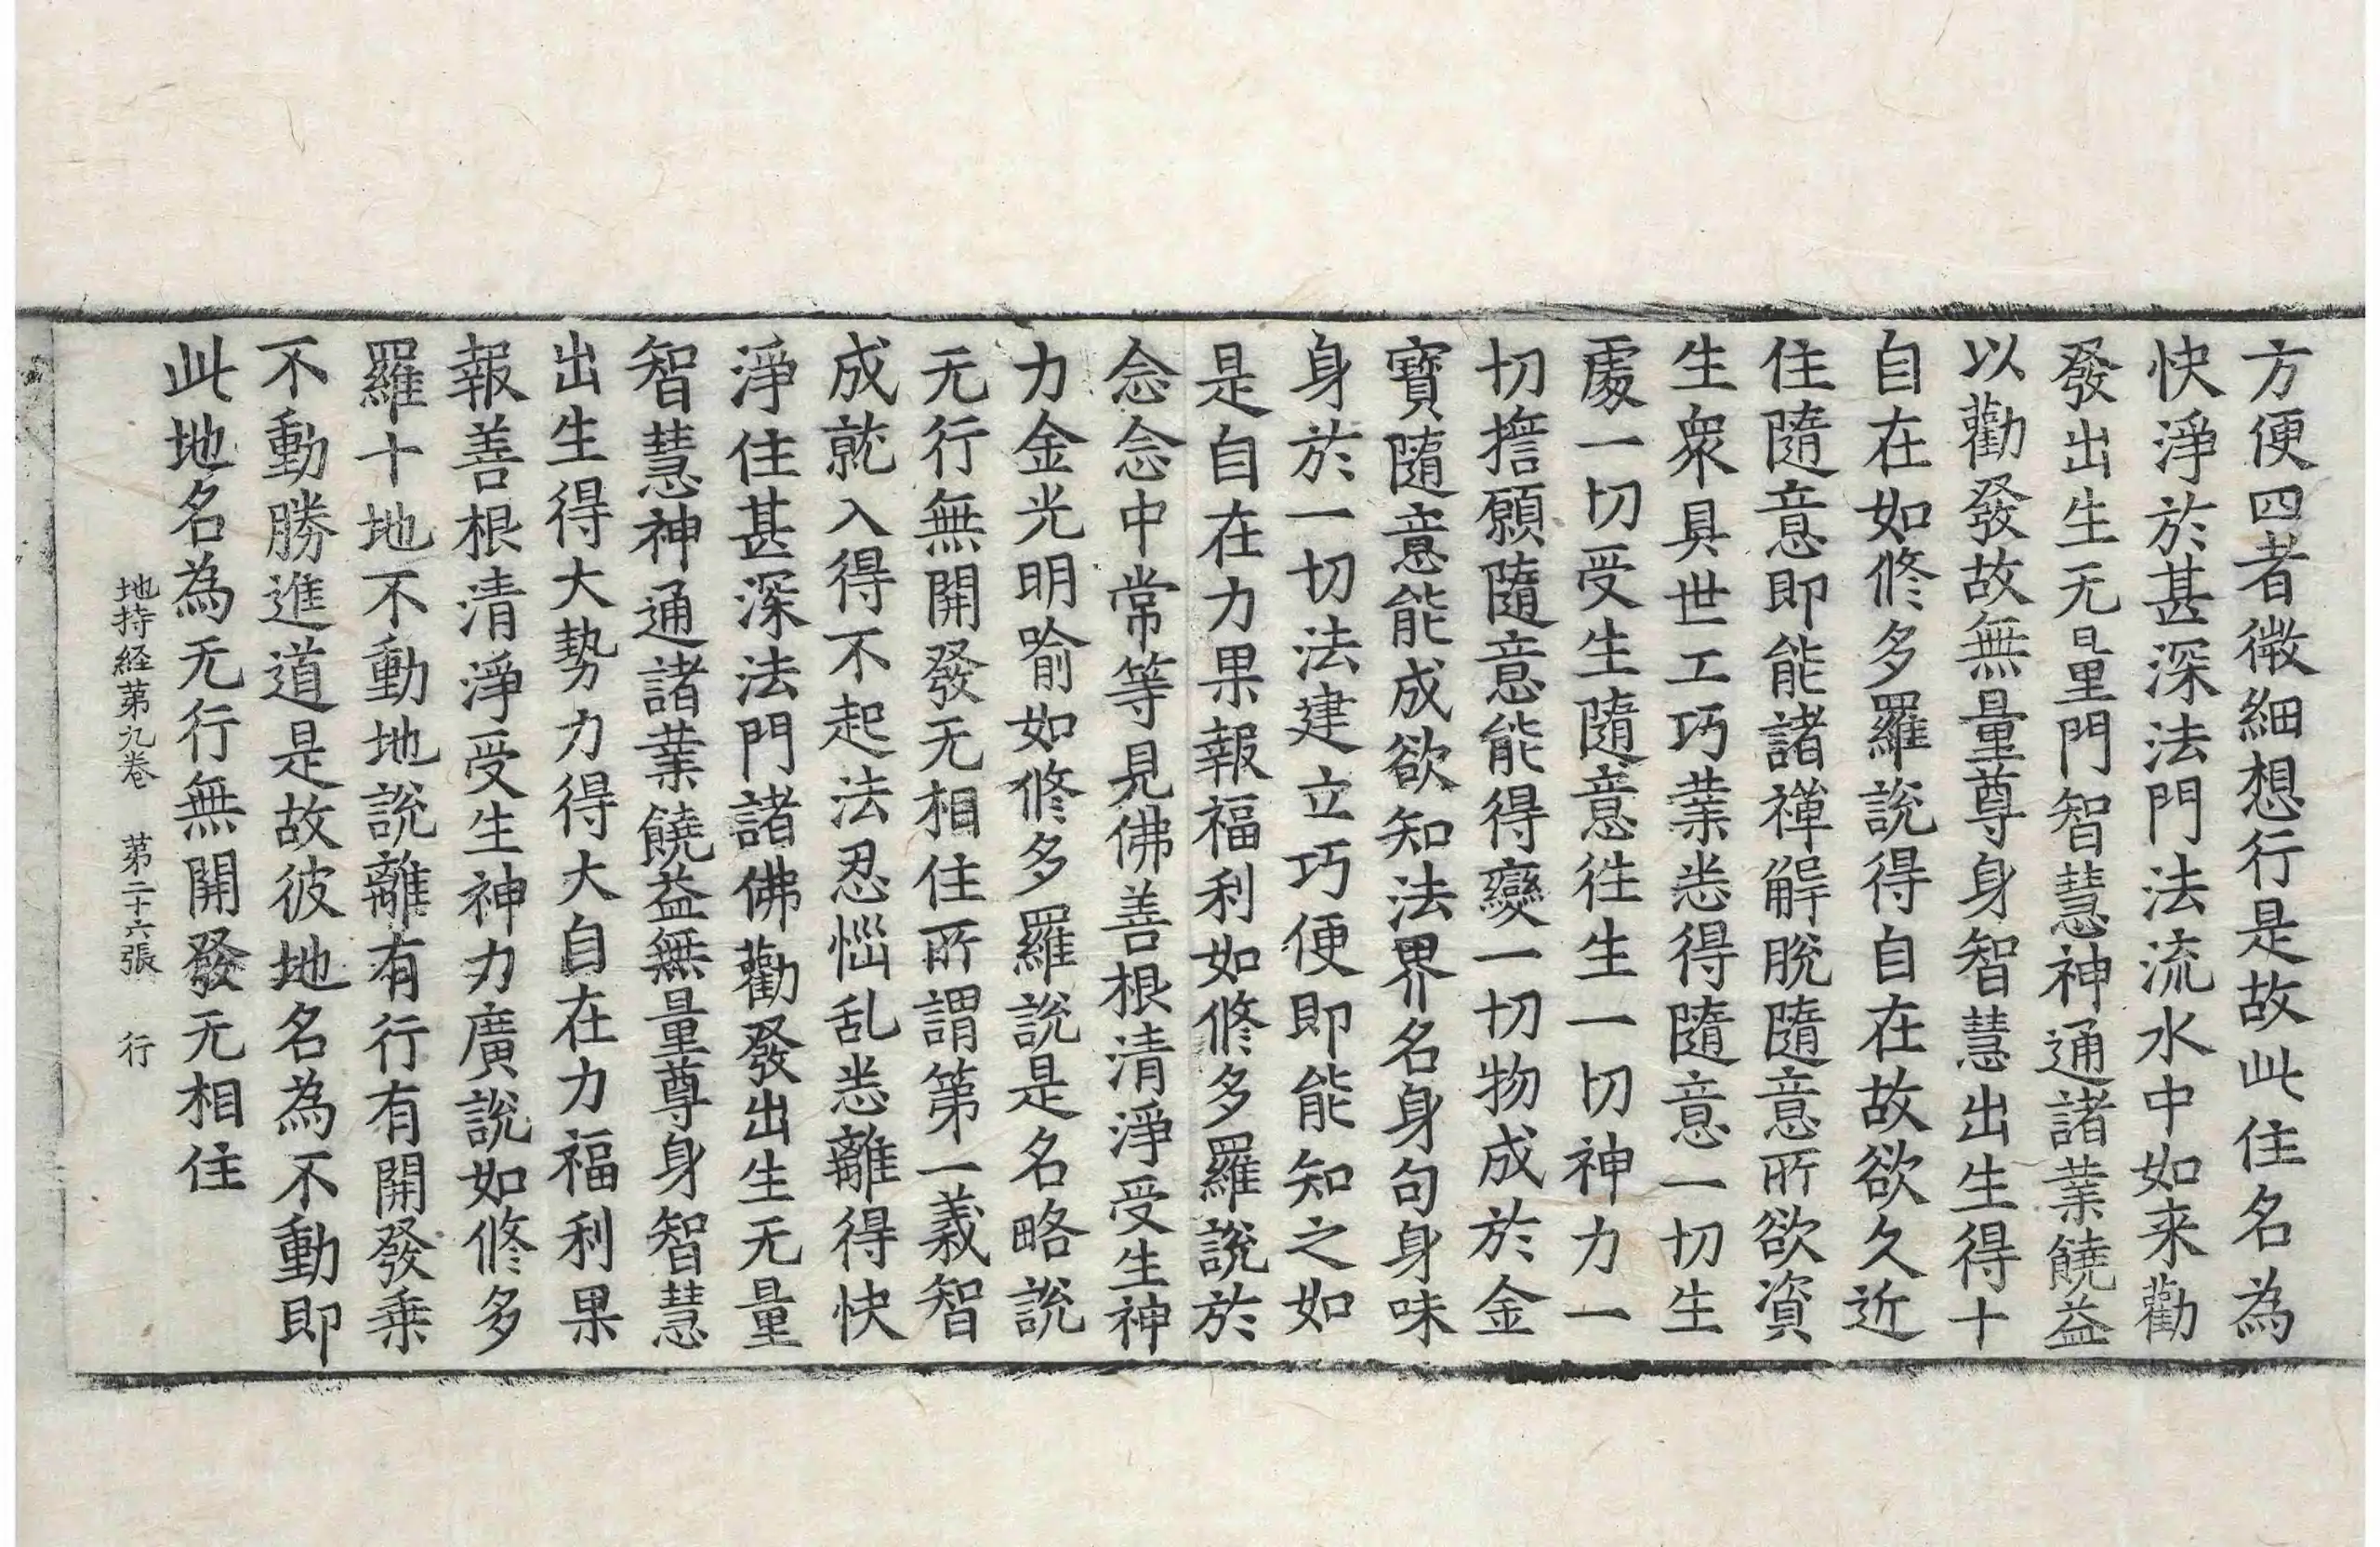 方便四者微細想行是故此住名為
快淨於甚深法門法流水中如来勸
發出生无量門智慧神通諸業饒益
以勸發故無量尊身智慧出生得十
自在如修多羅說得自在故欲久近
住隨意即能諸禪解脫隨意所欲資
生衆具世工巧業悉得隨意一切生
處一切受生隨意徃生一切神力一
切擔願隨意能得變一切物成於金
寶隨意能成欲知法界名身句身味
身於一切法建立巧便即能知之如
是自在力果報福利如修多羅說於
念念中常等見佛善根清淨受生神
力金光明喻如修多羅說是名略說
无行無開發无相住所謂第一義智
成就入得不起法忍惱乱悉離得快
淨住甚深法門諸佛勸發出生无量
智慧神通諸業饒益無量尊身智慧
出生得大势力得大自在力福利果
報善根清淨受生神力廣說如修多
羅十地不動地說離有行有開發乗
不動勝進道是故彼地名為不動即
此地名為无行無開發无相住
地持経第九卷 第二十六張 行